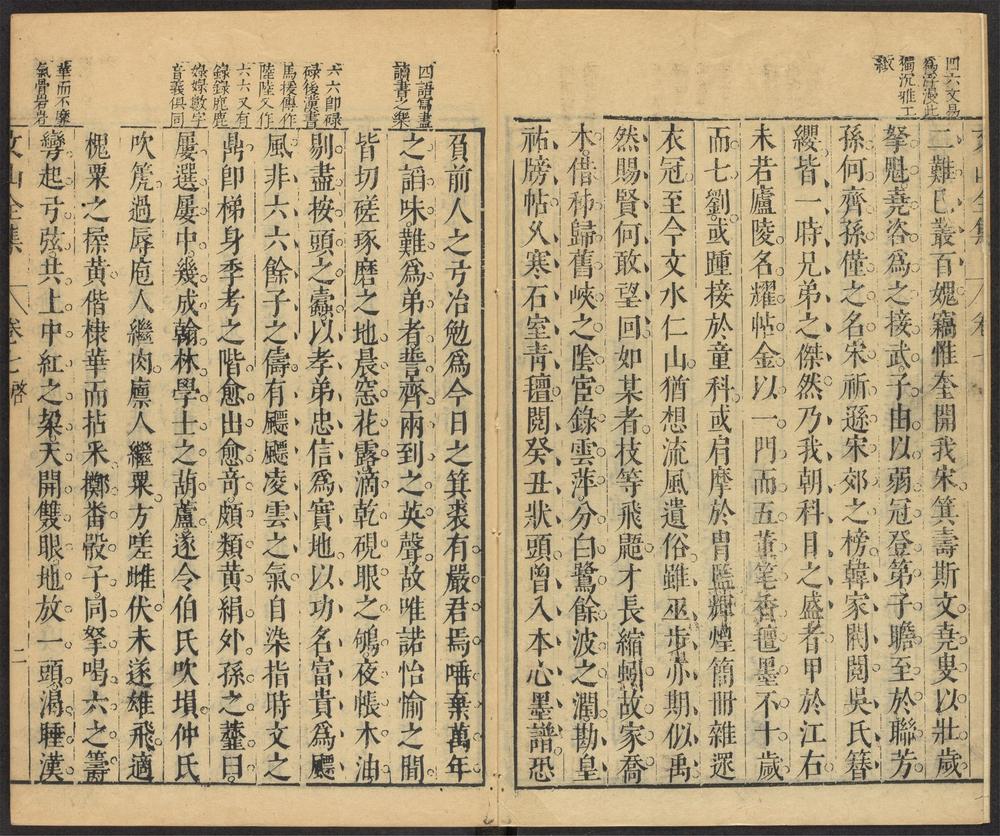 四六文易
為浮漫此
獨沉雅工
緻
二難巳叢百媿竊惟奎開我宋箕壽斯文堯叟以壯歲
拏魁堯咨為之接武子由以弱冠登第子瞻至於聯芳
孫何齊孫僅之名宋祈遜宋郊之榜韓家閥閱吳氏簪
纓皆一時兄弟之傑然乃我朝科目之盛者甲於江右
未若廬陵名耀帖金以一門而五董笔香氊墨不十歲
而七劉或踵接於童科或肩摩於胄監輝煌簡冊雜遝
衣冠至今文水仁山猶想流風遺俗雖巫步亦期似禹
然賜賢何敢望回如某者枝等飛鼯才長縮蚓故家喬
木借柿歸舊峽之陰宦錄雲萍分白鷺餘波之潤勘皇
祐牓帖久寒石室靑氊閱癸丑狀頭曾入本心墨譜恐
四語寫盡
讀書之樂
六六卽碌
碌後漢書
馬援傳作
陸陸又作
六六又有
錄錄鹿鹿
娽娽數字
音義俱同
華而不靡
氣骨岩岩
負前人之弓冶勉為今日之箕裘有嚴君焉唾棄萬年
之謟味難為弟者誓齊兩到之英聲故唯諾怡愉之間
皆切磋琢磨之地晨窓花露滴乾硯眼之鴝夜帳木油
剔盡按頭之蠹以孝弟忠信為實地以功名富貴為飃
風非六六餘子之儔有飃飃凌雲之氣自染指時文之
鼎卽梯身季考之階愈出愈竒頗類黃絹外孫之虀曰
屢選屢中幾成翰林學士之葫蘆遂令伯氏吹塤仲氏
吹箎過辱庖人繼肉廪人繼粟方嗟雌伏未遂雄飛適
槐粟之擇黃偕棣華而拈釆擲畨骰子同拏喝六之籌
彎起弓弦共上中紅之梁天開雙眼地放一頭渴睡漢
文山全集 卷七 啓 二